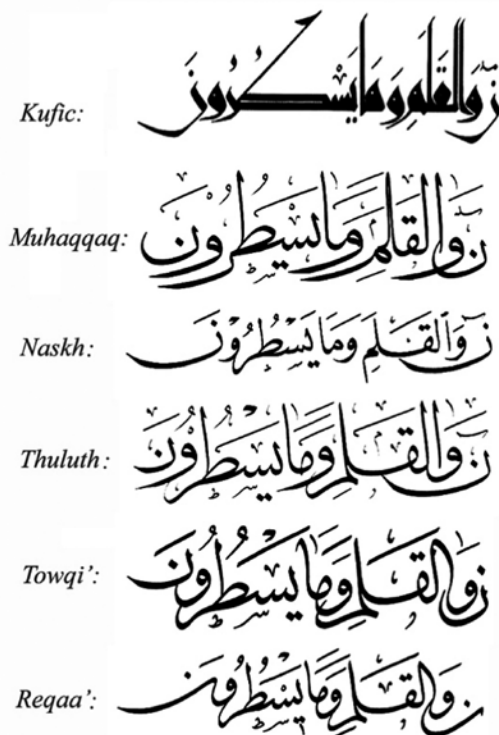 Kufic: ن وَالقَلَمِ وَمَا يَسْطُرُونَ
Muhaqqaq: نَ وَالْقَلَمِ وَمَا يَسْطُرُونَ
Naskh: نَ وَٱلْقَلَمِ وَمَا يَسْطُرُوْنَ
Thuluth: نَ وَالْقَلَمِ وَمَا يَسْطُرُونَ
Towqi’: ن وَالْقَلَمِ وَمَا يَسْطُرُونَ
Reqaa’: ن وَالْقَلَمِ وَمَا يَسْطُرُونَ